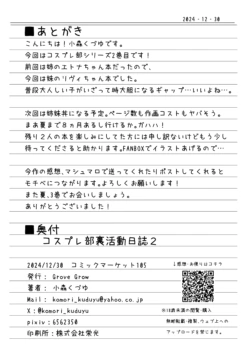 2024・12・30
■あとがき
こんにちは！小森くづゆです。
今回はコスプレ部シリーズ2巻目です！
前回は姉のエトナちゃん本だったので、
今回は妹のリヴィちゃん本でした。
普段大人しい子がいざって時大胆になるギャップ…いいよね…。
次回は姉妹丼になる予定。ページ数も作画コストもヤバそう。
まあ夏まで8ヵ月あるし行けるか。ガハハ！
残り2人の本を楽しみにしてた方には申し訳ないけどもう少し
待ってくださると助かります。FANBOXでイラストあげるので…
今作の感想、マシュマロで送ってくれたりポストしてくれると
モチベにつながります。よろしくお願いします！
また夏、3巻でお会いしましょう。
ありがとうございました！
■奥付
コスプレ部裏活動日誌2
2024/12/30 コミックマーケット105
発行： Grove Grow
著者： 小森くづゆ
Mail： komori_kuduyu@yahoo.co.jp
X：@komori_kuduyu
pixiv：6562350
印刷所：株式会社栄光
↓感想・お便りはコチラ
※18歳未満の閲覧・購入
無断転載・複製、ウェブ上への
アップロードを禁じます。